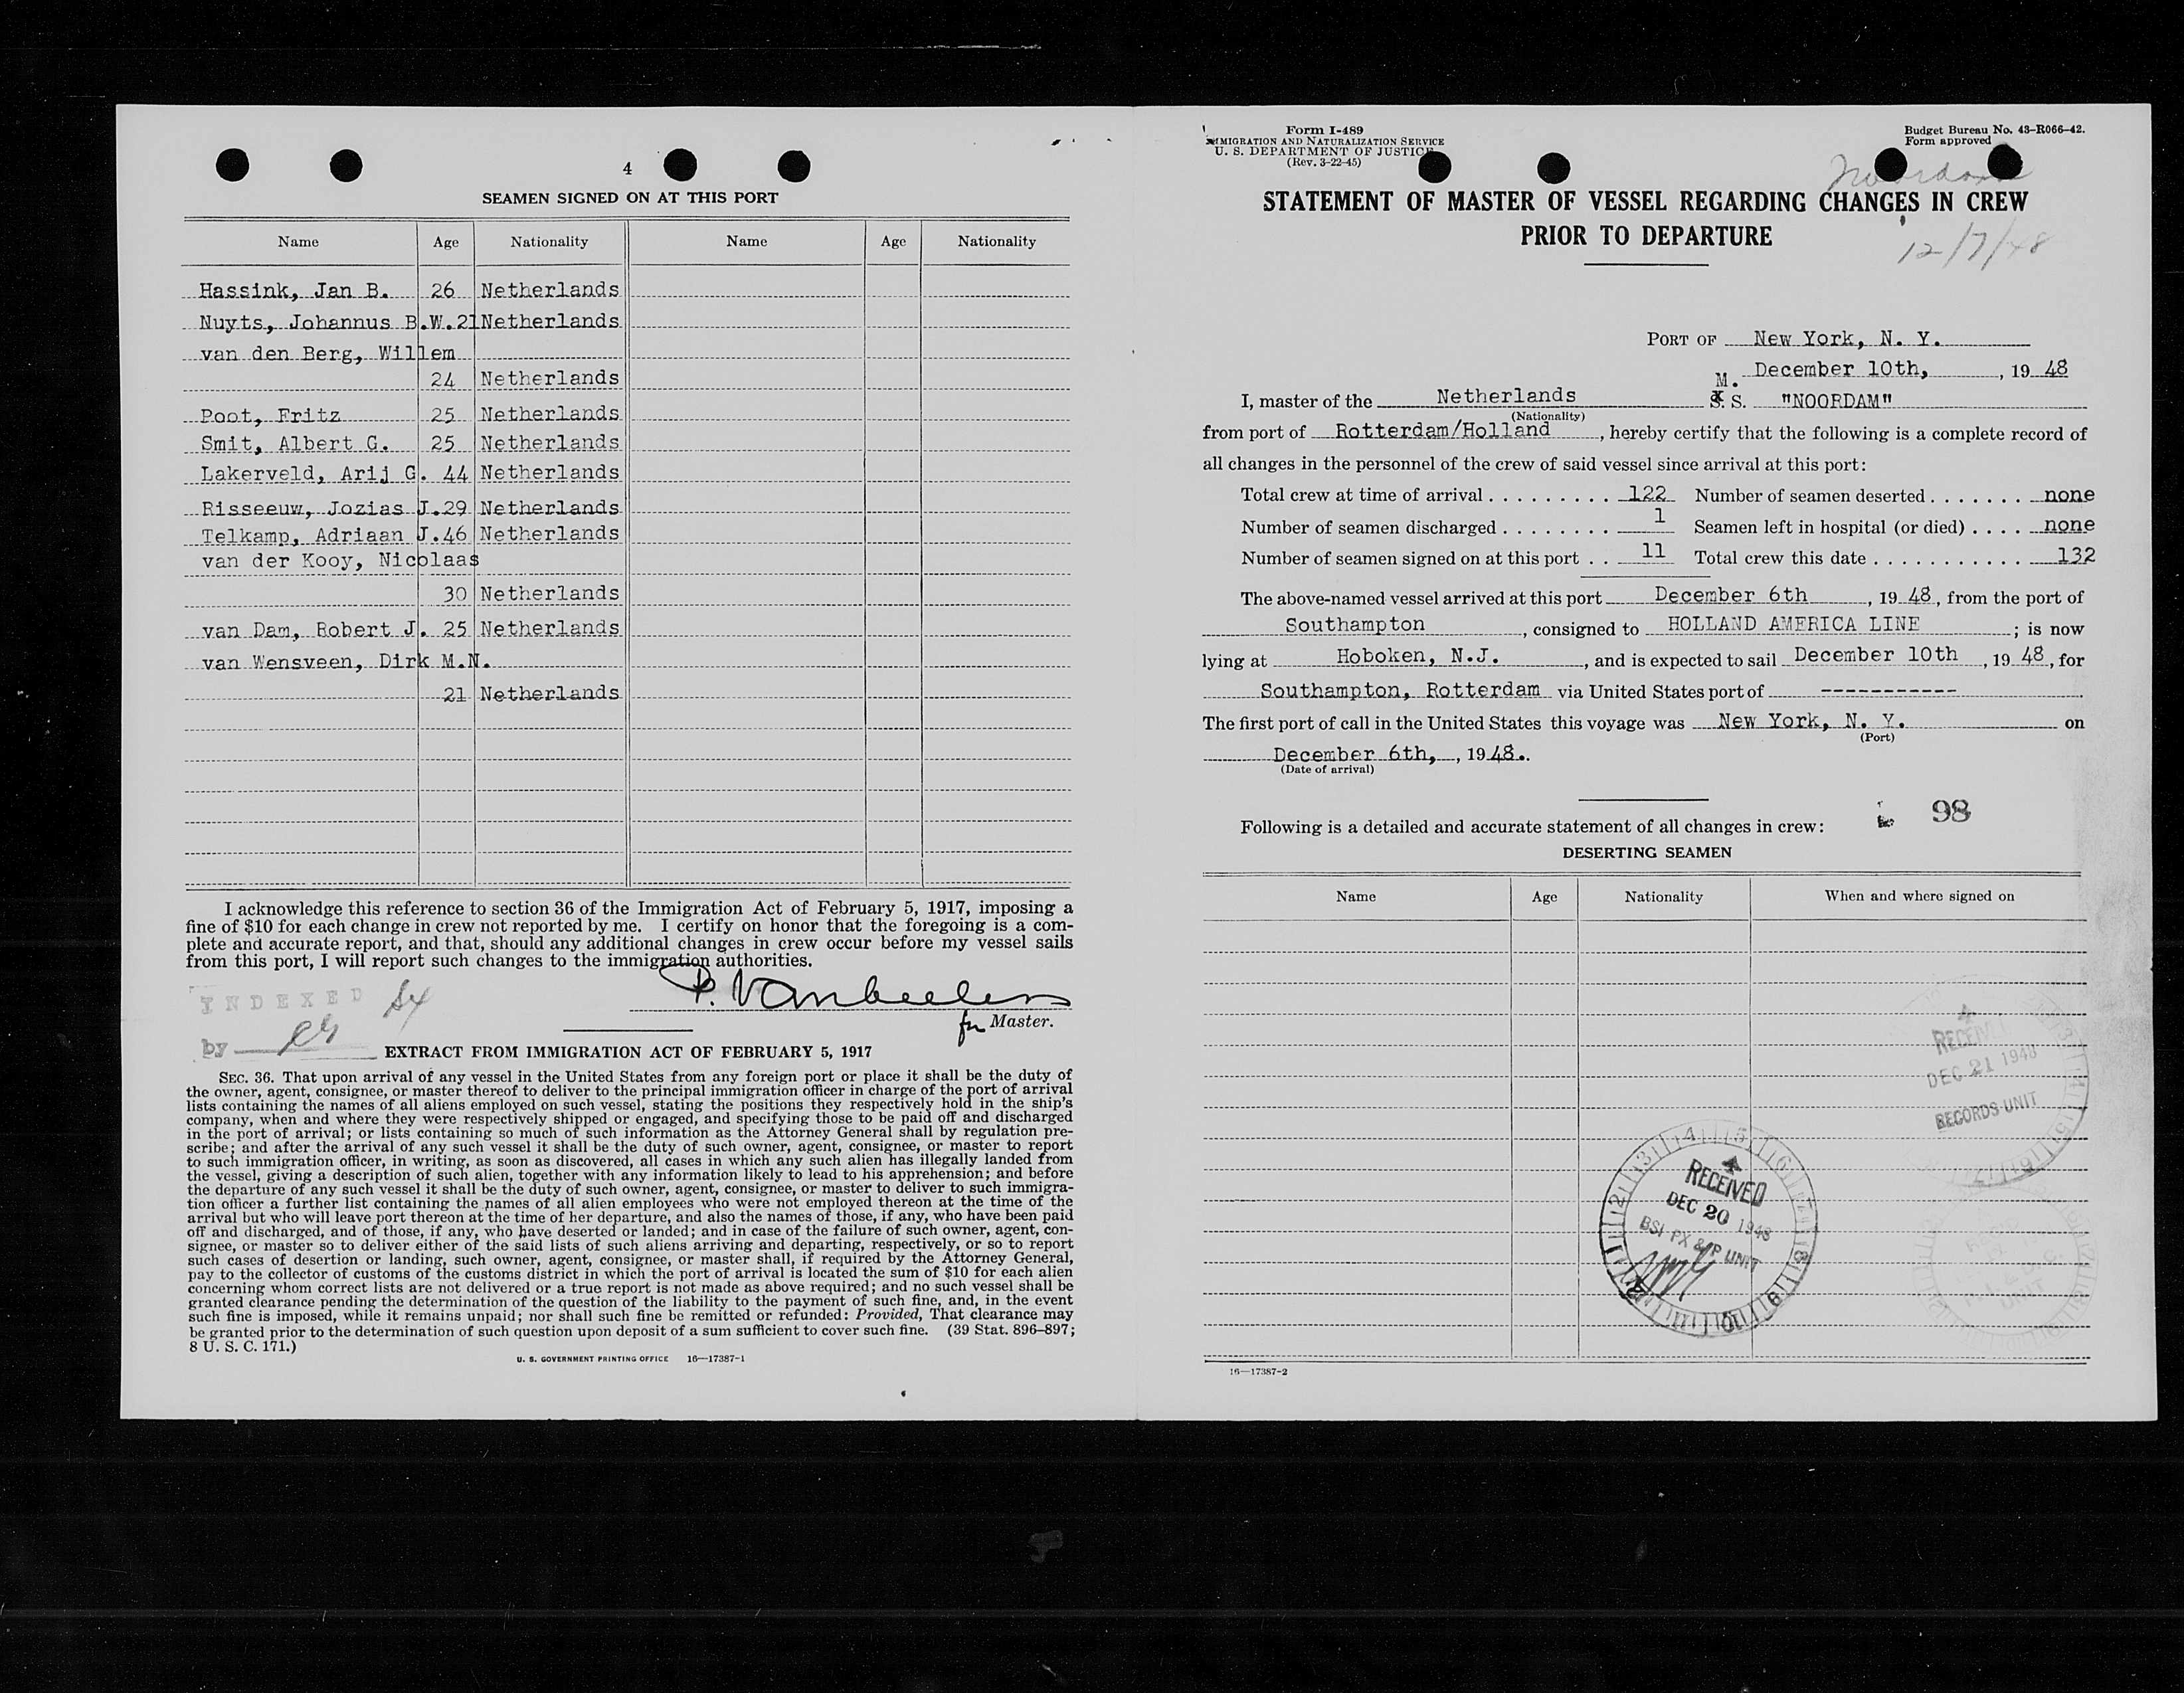 4
SEAMEN SIGNED ON AT THIS PORT
Name Age Nationality Name Age Nationality
Hassink, Jan B. 26 Netherlands
Nuyts, Johannus B.W. 21 Netherlands
van den Berg, Willem
24 Netherlands
Poot, Fritz 25 Netherlands
Smit, Albert G. 25 Netherlands
Lakerveld, Arij G. 44 Netherlands
Risseeuw, Jozias J. 29 Netherlands
Telkamp, Adriaan J. 46 Netherlands
van der Kooy, Nicolaas
30 Netherlands
van Dam, Robert J. 25 Netherlands
van Wensveen, Dirk M.N.
21 Netherlands
I acknowledge this reference to section 36 of the Immigration Act of February 5, 1917, imposing a
fine of $10 for each change in crew not reported by me. I certify on honor that the foregoing is a com-
plete and accurate report, and that, should any additional changes in crew occur before my vessel sails
from this port, I will report such changes to the immigration authorities.
INDEXED
by
for Master.
EXTRACT FROM IMMIGRATION ACT OF FEBRUARY 5, 1917
SEC. 36. That upon arrival of any vessel in the United States from any foreign port or place it shall be the duty of
the owner, agent, consignee, or master thereof to deliver to the principal immigration officer in charge of the port of arrival
lists containing the names of all aliens employed on such vessel, stating the positions they respectively hold in the ship's
company, when and where they were respectively shipped or engaged, and specifying those to be paid off and discharged
in the port of arrival; or lists containing so much of such information as the Attorney General shall by regulation pre-
scribe; and after the arrival of any such vessel it shall be the duty of such owner, agent, consignee, or master to report
to such immigration officer, in writing, as soon as discovered, all cases in which any such alien has illegally landed from
the vessel, giving a description of such alien, together with any information likely to lead to his apprehension; and before
the departure of any such vessel it shall be the duty of such owner, agent, consignee, or master to deliver to such immigra-
tion officer a further list containing the names of all alien employees who were not employed thereon at the time of the
arrival but who will leave port thereon at the time of her departure, and also the names of those, if any, who have been paid
off and discharged, and of those, if any, who have deserted or landed; and in case of the failure of such owner, agent, con-
signee, or master so to deliver either of the said lists of such aliens arriving and departing, respectively, or so to report
such cases of desertion or landing, such owner, agent, consignee, or master shall, if required by the Attorney General,
pay to the collector of customs of the customs district in which the port of arrival is located the sum of $10 for each alien
concerning whom correct lists are not delivered or a true report is not made as above required; and no such vessel shall be
granted clearance pending the determination of the question of the liability to the payment of such fine, and, in the event
such fine is imposed, while it remains unpaid; nor shall such fine be remitted or refunded: Provided, That clearance may
be granted prior to the determination of such question upon deposit of a sum sufficient to cover such fine. (39 Stat. 896–897;
8 U. S. C. 171.)
U. S. GOVERNMENT PRINTING OFFICE 16—17387-1
Form I-489
IMMIGRATION AND NATURALIZATION SERVICE
U. S. DEPARTMENT OF JUSTICE
(Rev. 3-22-45)
Budget Bureau No. 43-R066-42.
Form approved
Noordam
STATEMENT OF MASTER OF VESSEL REGARDING CHANGES IN CREW
PRIOR TO DEPARTURE
12/7/48
PORT OF New York, N. Y.
December 10th, , 19 48
I, master of the Netherlands M. S. "NOORDAM"
(Nationality)
from port of Rotterdam/Holland , hereby certify that the following is a complete record of
all changes in the personnel of the crew of said vessel since arrival at this port:
Total crew at time of arrival . . . . . . . . . 122 Number of seamen deserted . . . . . . . none
Number of seamen discharged . . . . . . . . 1 Seamen left in hospital (or died) . . . . none
Number of seamen signed on at this port . . 11 Total crew this date . . . . . . . . . . . 132
The above-named vessel arrived at this port December 6th , 19 48, from the port of
Southampton , consigned to HOLLAND AMERICA LINE ; is now
lying at Hoboken, N.J. , and is expected to sail December 10th , 19 48, for
Southampton, Rotterdam via United States port of -----------
The first port of call in the United States this voyage was New York, N. Y. on
(Port)
December 6th, , 19 48..
(Date of arrival)
98
Following is a detailed and accurate statement of all changes in crew:
DESERTING SEAMEN
Name Age Nationality When and where signed on
RECEIVED
DEC 21 1948
RECORDS UNIT
RECEIVED
DEC 20 1948
BSI PX & P UNIT
16—17387-2